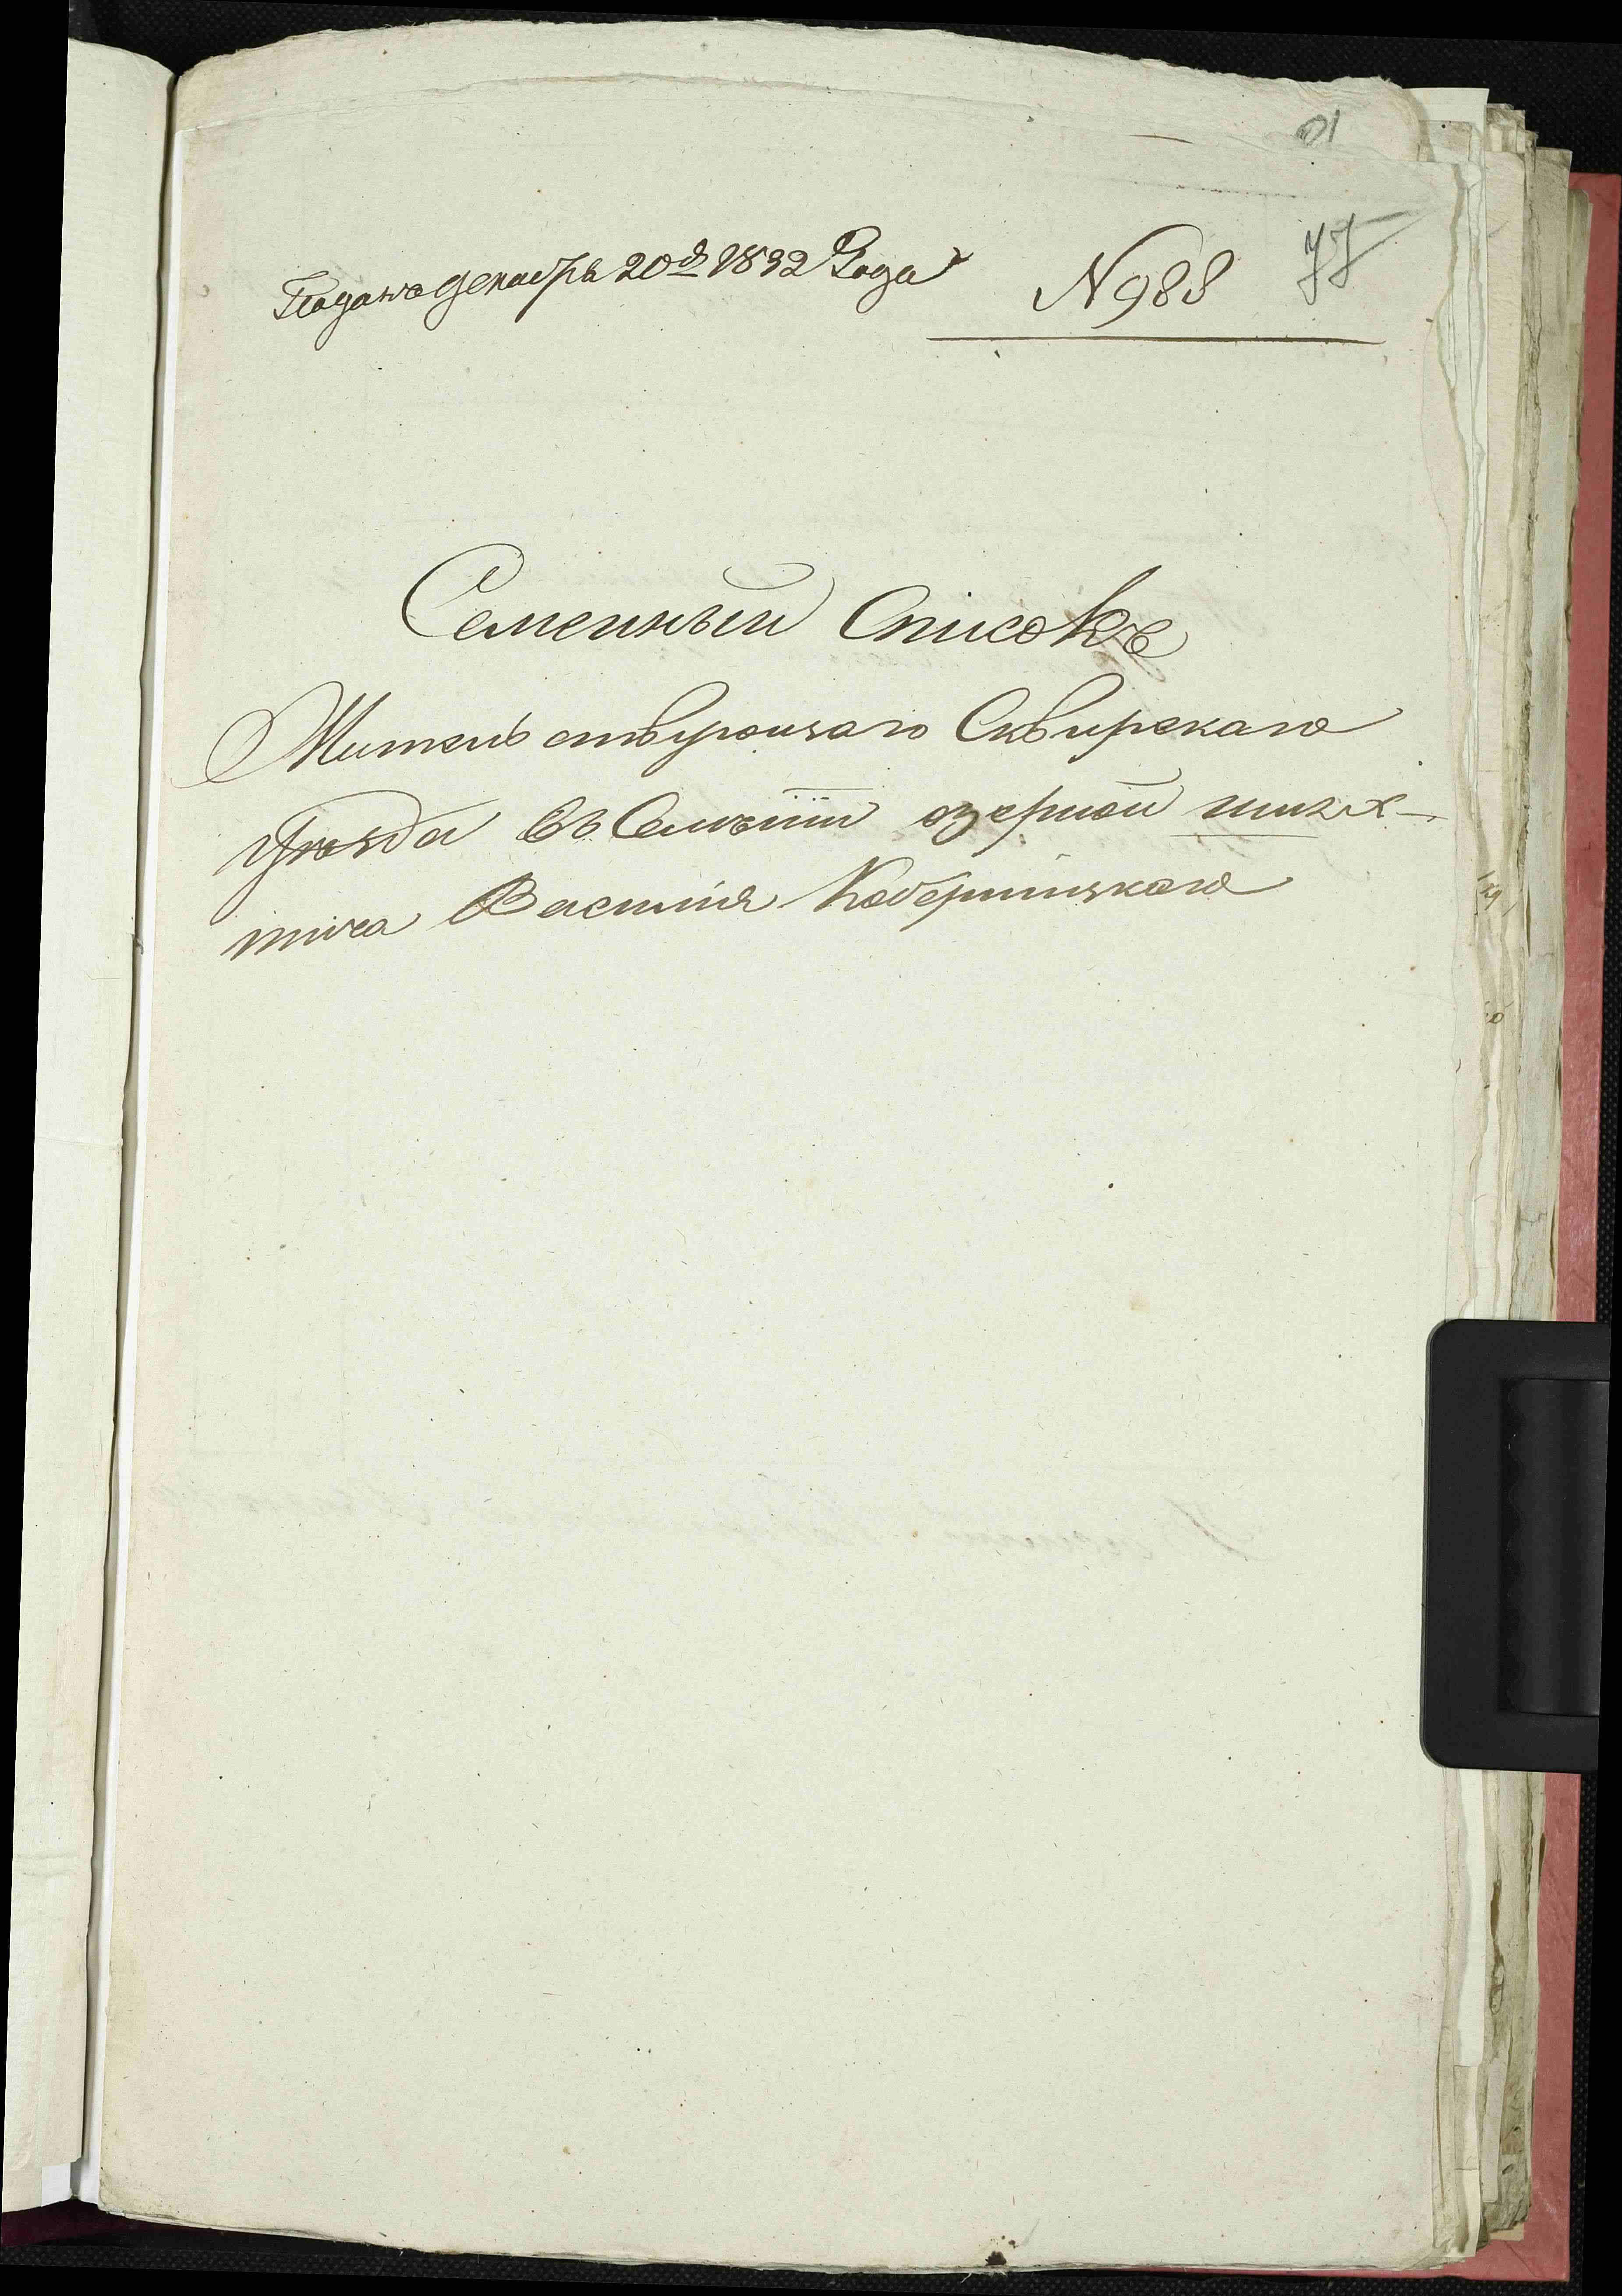 01
Подано декабря 20д 1832 Года
N 988
77
Семейный Список
Жительствующаго Сквирскаго
уезда въ Селении озерной шлях-
тича Василия Коберницкаго